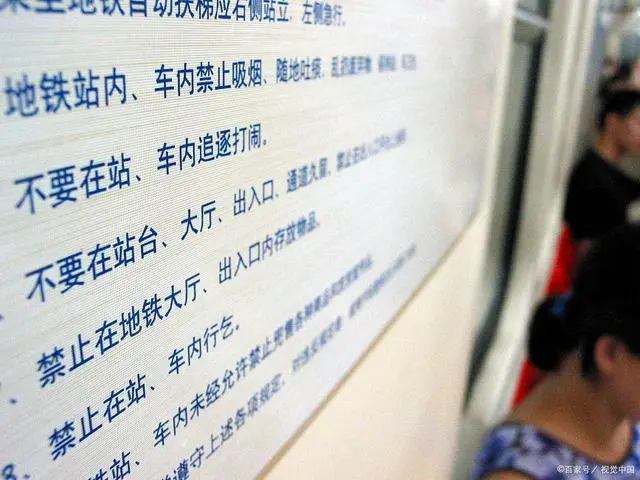 乘坐地铁自动扶梯应右侧站立，左侧急行。
地铁站内、车内禁止吸烟、随地吐痰、乱扔
不要在站、车内追逐打闹。
不要在站台、大厅、出入口、通道久留，禁止在出入口
禁止在地铁大厅、出入口内存放物品。
禁止在站、车内行乞。
8、铁站、车内未经允许禁止兜售各种商品
遵守上述各项规定，对违反规定者，
©百家号／视觉中国